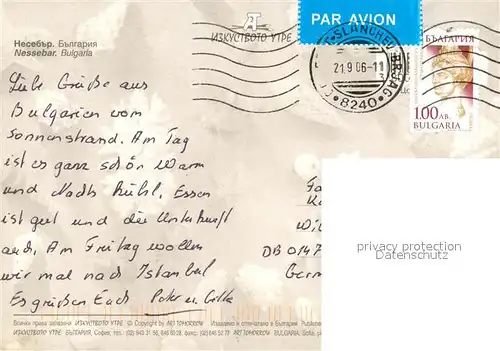 Несебър. България
Nessebar. Bulgaria
ИЗКУСТВОТО УТРЕ
PAR AVION
SLANCHEV BRJAG
21.9.06-11
8240
БЪЛГАРИЯ
1.00 ЛВ.
BULGARIA
Liebe Grüße aus
Bulgarien vom
Sonnenstrand. Am Tag
ist es ganz schön warm
und Nachts kühl. Essen
ist gut und die Unterkunft
auch. Am Freitag wollen
wir mal nach Istanbul
Es grüßen Euch Peter u.
Fa
K
Wi
DB 0147
Germ
privacy protection
Datenschutz
Всички права запазени ИЗКУСТВОТО УТРЕ © Copyright by ART TOMORROW Издадено и отпечатано в България
ИЗКУСТВОТО УТРЕ БЪЛГАРИЯ, София, ART TOMORROW BULGARIA, Sofia